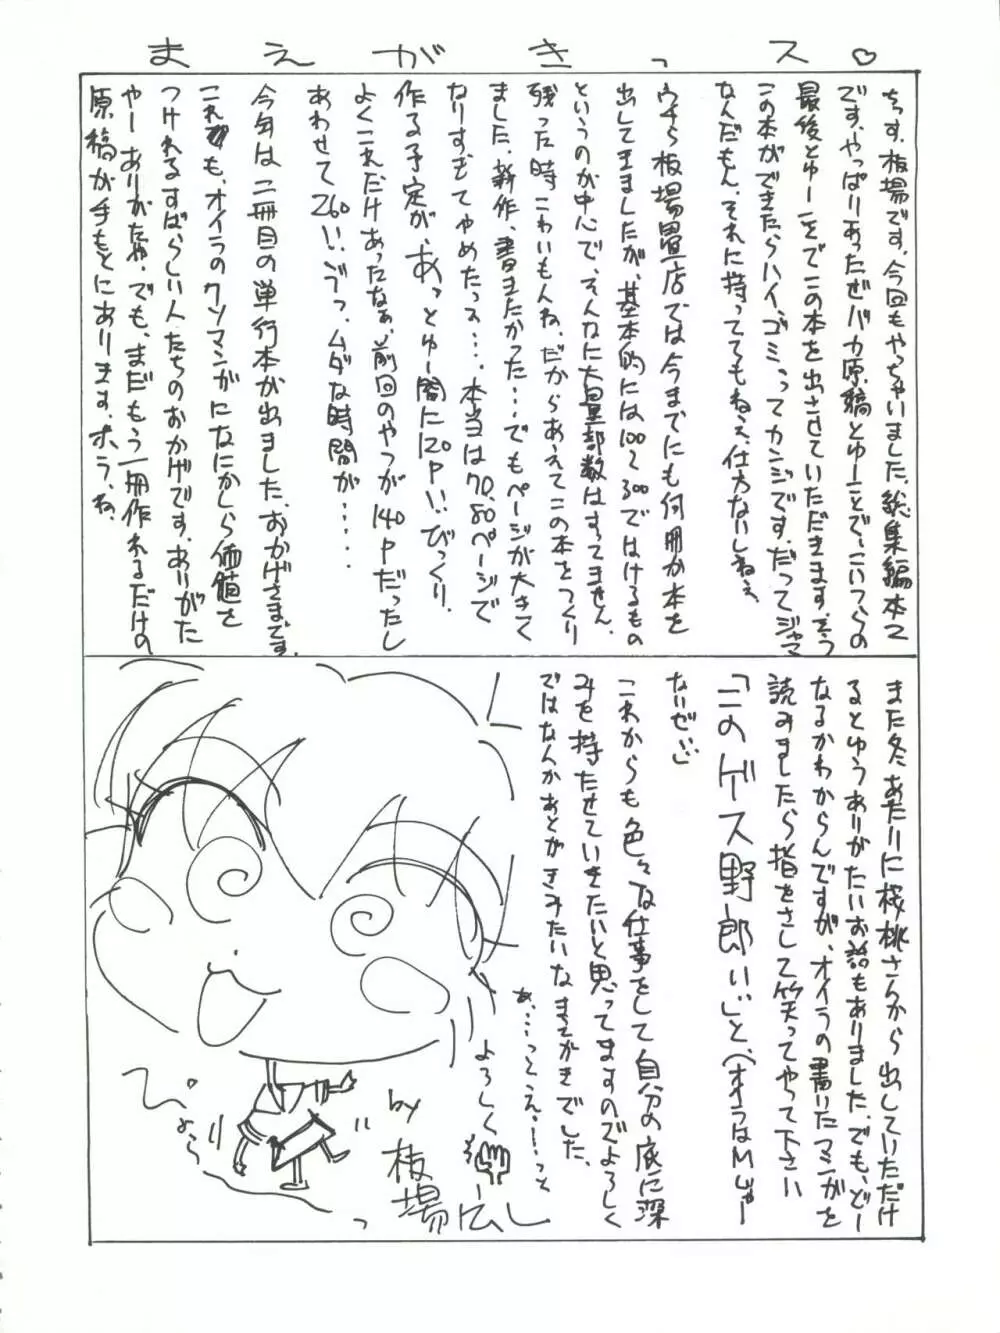 まえがきっス♡
ちす、板場です。今回もやっちゃいました、総集編本で
です。やっぱりあったぜバカ原稿とゆーことで、こいつらの
最後とゆーことでこの本を出させていただきます。そう
この本ができたらハイ、ゴミってカンジです。だってジャマ
なんだもん。それに持っててもねぇ、仕方ないしねぇ
ウチら板場畳店では今までにも何冊か本を
出してきましたが、基本的には100〜300ではけるもの
というのが中心で、そんなに大量部数はすってません。
残った時こわいもんね。だからあえてこの本をつくり
ました。新作、書きたかった…でもページが大きく
なりすぎてやめたっス…。本当は70、80ページで
作る予定が、あっとゆー間に120P!!びっくり。
よくこれだけあったなぁ。前回のやつが140Pだったし
あわせて260!!、ゔっ、ムダな時間が……
今年は二冊目の単行本が出ました。おかげさまです。
これも、オイラのクソマンガになにかしら価値を
つけれるすばらしい人たちのおかげです。ありがた
やーありがたや。でも、まだもう一冊作れるだけの
原稿が手もとにあります。ホラ、ね。
また冬あたりに桜桃さんから出していただけ
るとゆうありがたいお話もありました。でも、どー
なるかわからんですが、オイラの書いたマンガを
読みましたら指をさして笑ってやって下さい
「このゲス野郎!!」と、(オイラはMじゃー
ないぜ!!)
これからも色々な仕事をして自分の底に深
みを持たせていきたいと思ってますのでよろしく
ではなんかあとがきみたいなまえがきでした。
あ…っとえー…っと
よろしく
by
板場広し
ぴょろっ